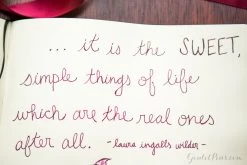 ... it is the SWEET,
simple things of life
which are the real ones
after all. -laura ingalls wilder-